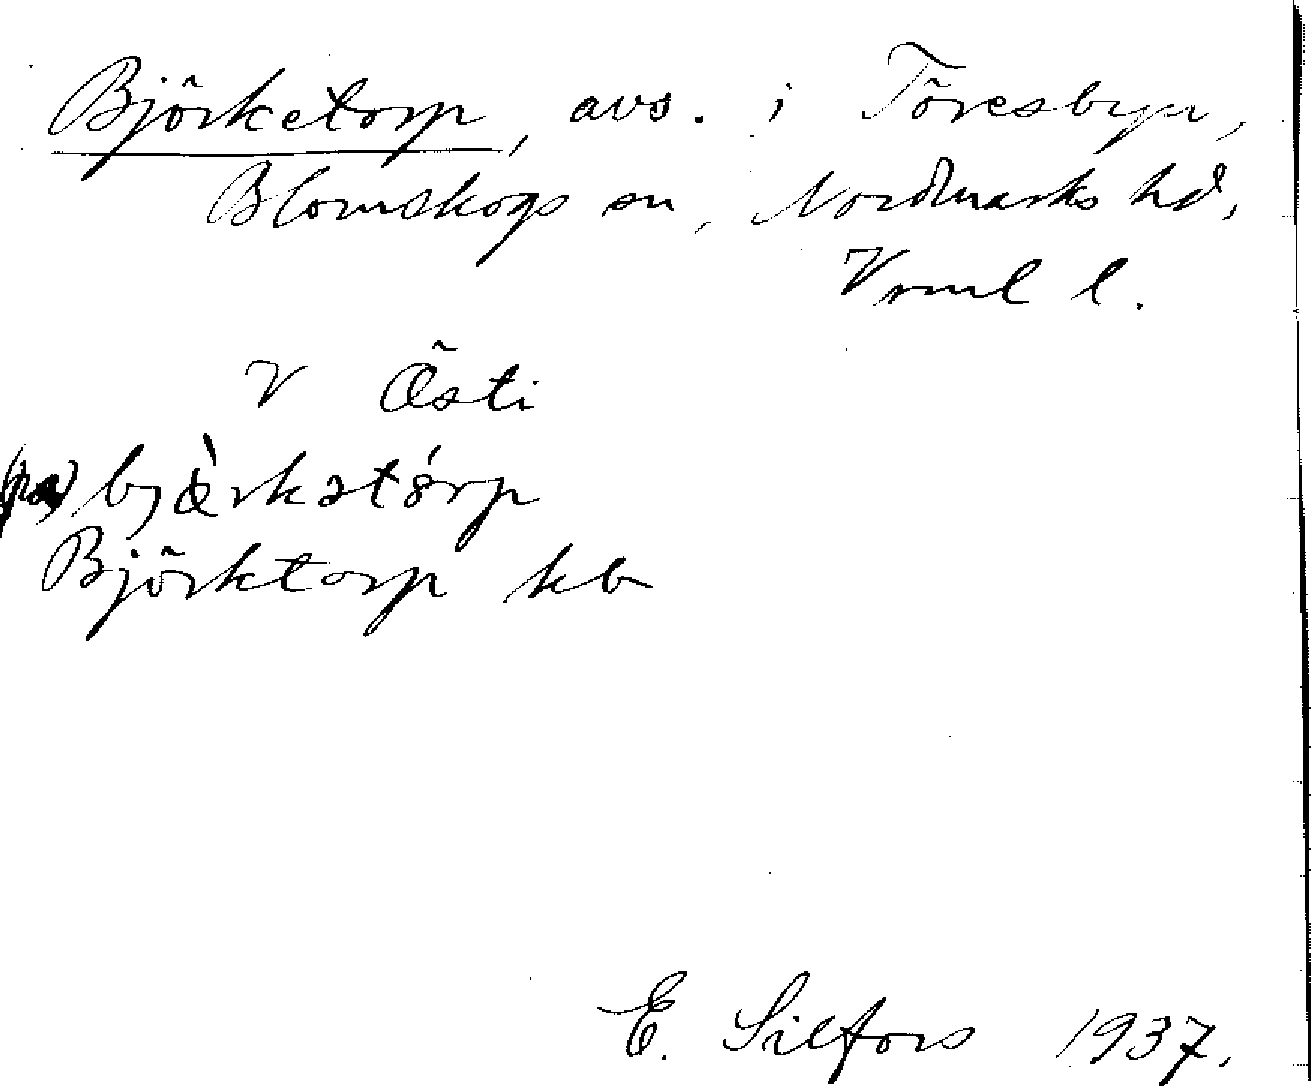 Björketorp, avs. i Töresbyn,
Blomskogs sn, Nordmarks hd,
Vrml l.
V Östi
(på) bjæ̀rkətórp
Björktorp kb
E. Silfors 1937.